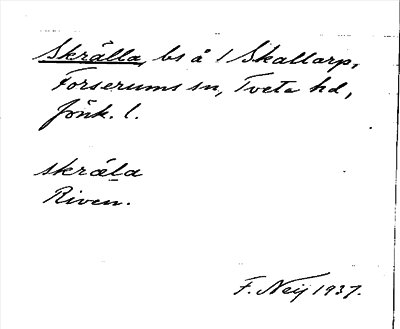 Skrålla, bs å 1 Skallarp,
Forserums sn, Tveta hd,
Jönk. l.
skräla
Riven.
F. Neij 1937.